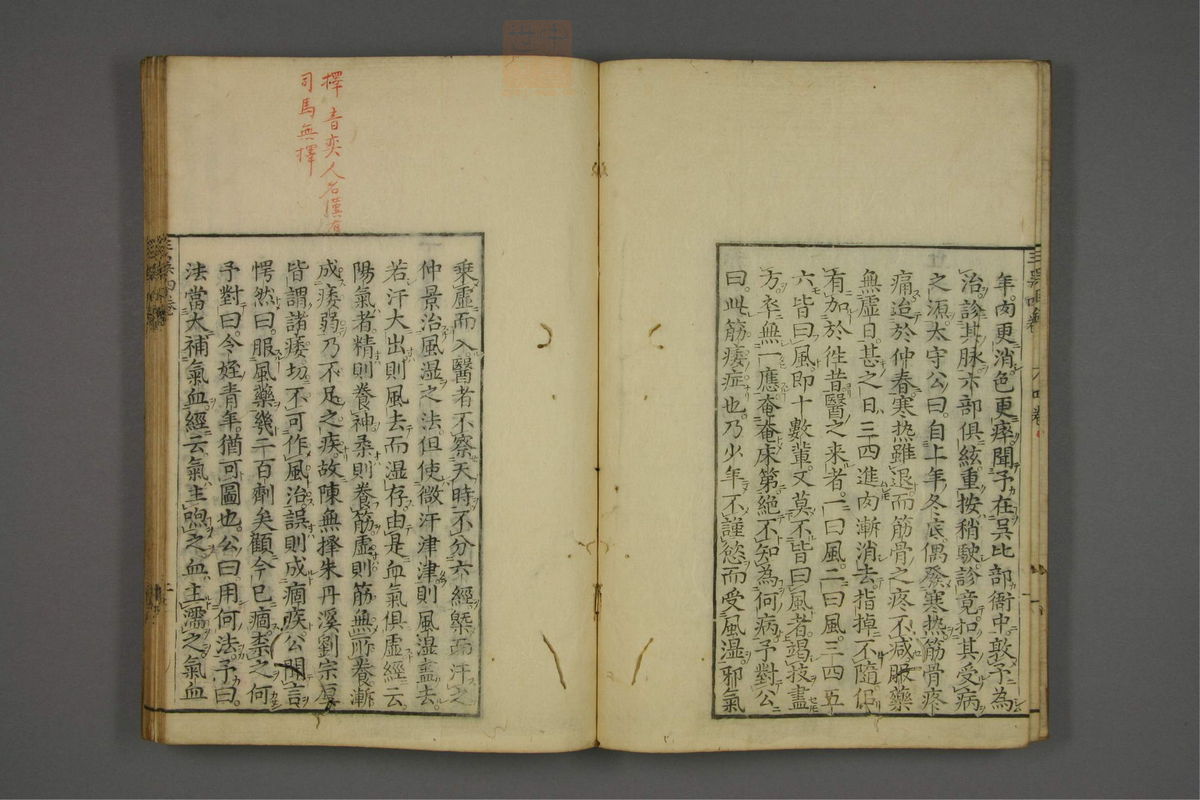 年肉更消色更瘁聞予在吳比部衙中敦予為
治診其脉六部俱絃重按稍駛診竟扣其受病
之源太守公曰自上年冬底偶發寒热筋骨疼
痛迨於仲春寒热雖退而筋骨之疼不減服藥
無虛日甚之日三四進肉漸消去指掉不隨仍
有加於徃昔醫之来者一曰風二曰風三四五
六皆曰風即十數輩又莫不皆曰風者竭技盡
方卒無一應奄奄床第絶不知為何病予對公
曰此筋痿症也乃少年不謹慾而受風湿邪氣
擇音奕人名漢有
司馬無擇
乘虛而入醫者不察天時不分六經槩而汗之
仲景治風湿之法但使微汗津津則風湿盡去
若汗大出則風去而湿存由是血氣俱虛經云
陽氣者精則養神柔則養筋虛則筋無所養漸
成痿弱乃不足之疾故陳無擇朱丹溪劉宗厚
皆謂諸痿切不可作風治誤則成痼疾公聞言
愕然曰服風藥幾二百劑矣顧今已痼柰之何
予對曰令姪青年猶可圖也公曰用何法予曰
法當大補氣血經云氣主呴之血主濡之氣血